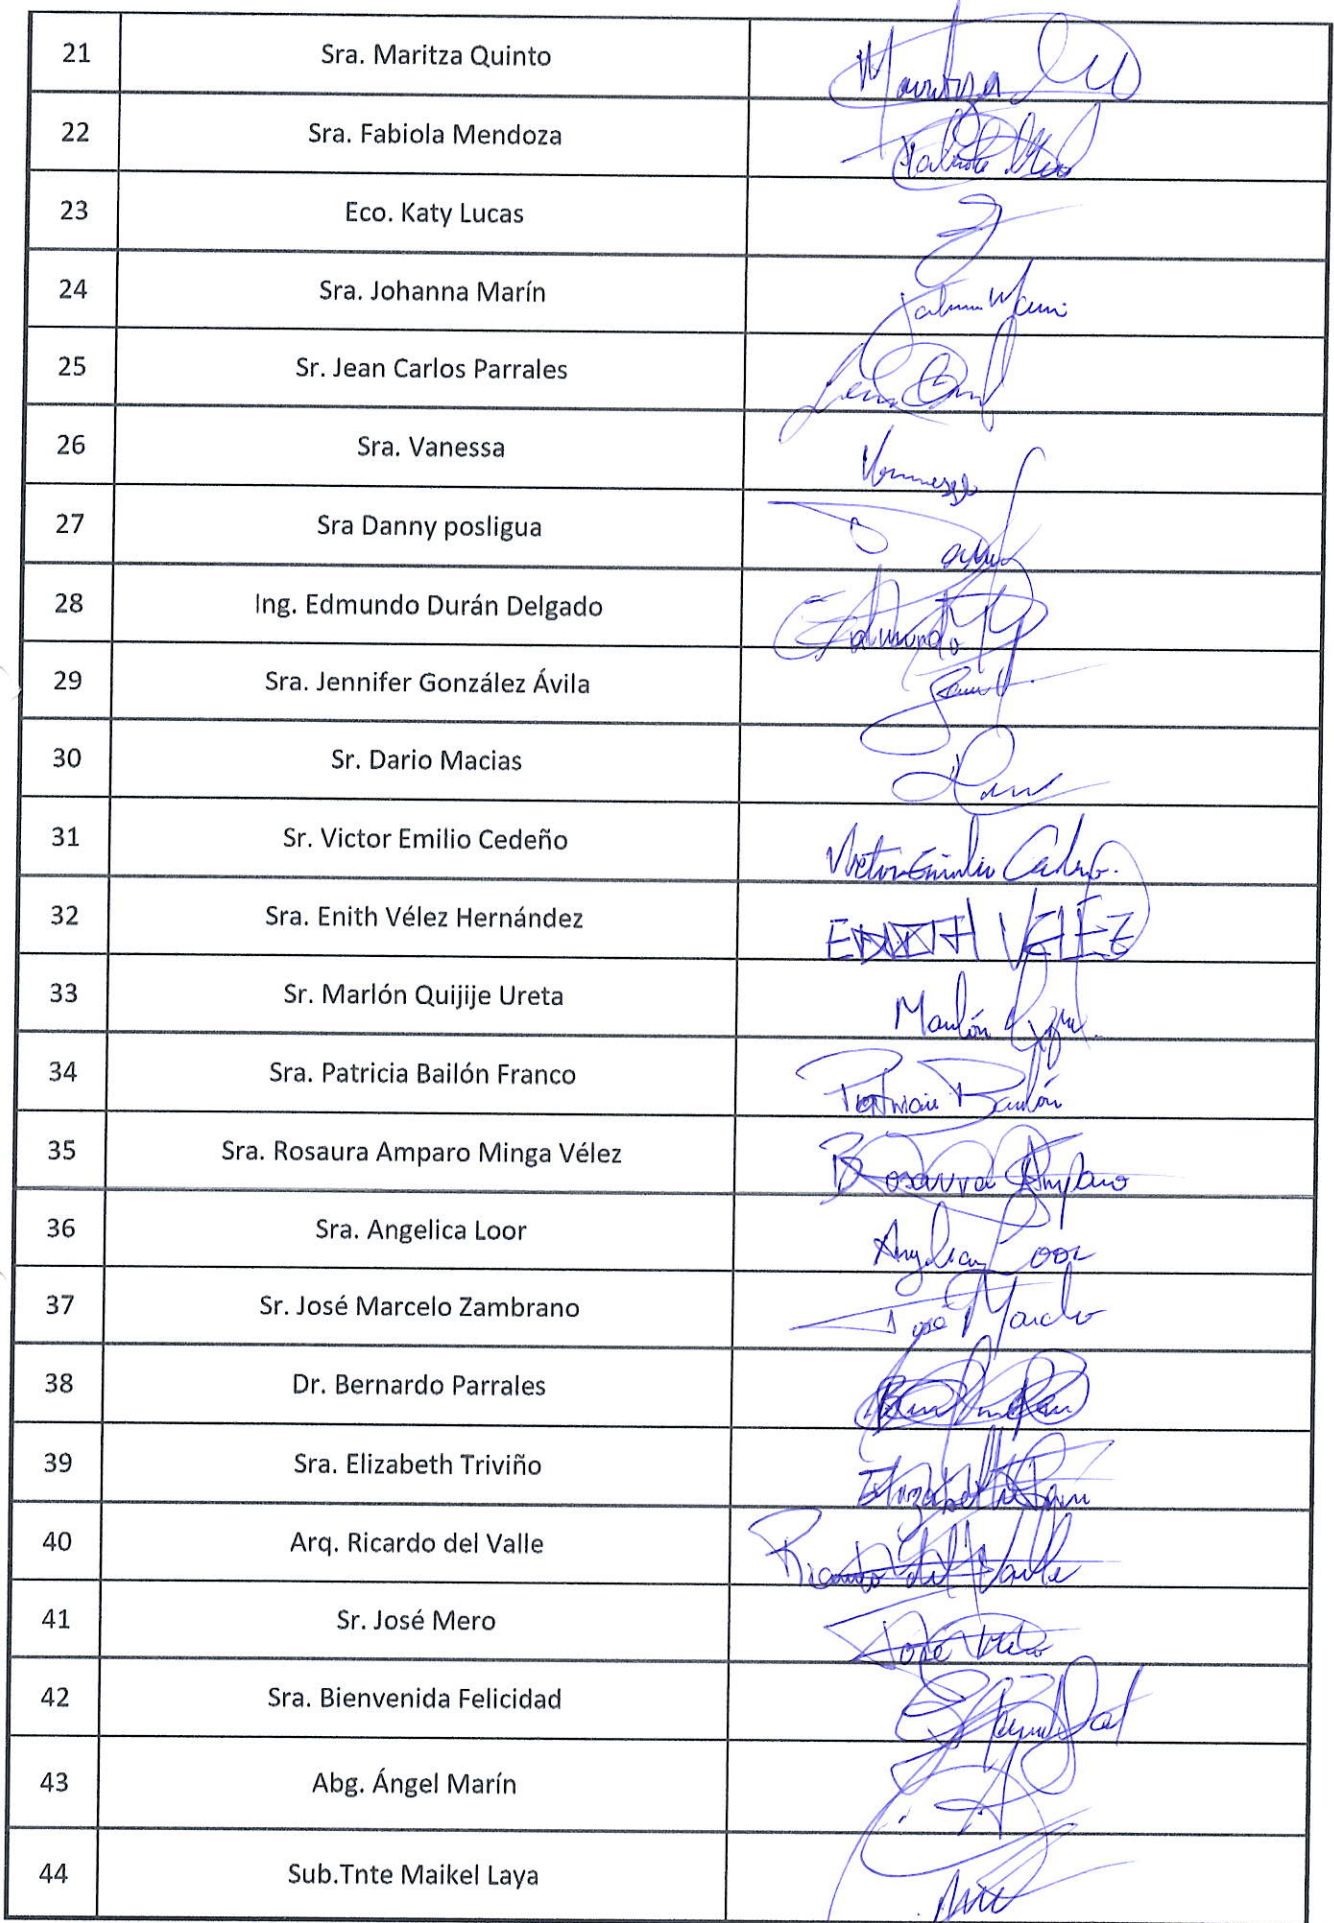 21 Sra. Maritza Quinto Maritza
22 Sra. Fabiola Mendoza
23 Eco. Katy Lucas
24 Sra. Johanna Marín
25 Sr. Jean Carlos Parrales
26 Sra. Vanessa Vanessa
27 Sra Danny posligua
28 Ing. Edmundo Durán Delgado Edmundo
29 Sra. Jennifer González Ávila
30 Sr. Dario Macias
31 Sr. Victor Emilio Cedeño Victor Emilio Cedeño
32 Sra. Enith Vélez Hernández ENITH VELEZ
33 Sr. Marlón Quijije Ureta Marlón
34 Sra. Patricia Bailón Franco Patricia Bailón
35 Sra. Rosaura Amparo Minga Vélez Rosaura Amparo
36 Sra. Angelica Loor Angelica Loor
37 Sr. José Marcelo Zambrano José Marcelo
38 Dr. Bernardo Parrales
39 Sra. Elizabeth Triviño Elizabeth
40 Arq. Ricardo del Valle Ricardo del Valle
41 Sr. José Mero José Mero
42 Sra. Bienvenida Felicidad
43 Abg. Ángel Marín
44 Sub.Tnte Maikel Laya